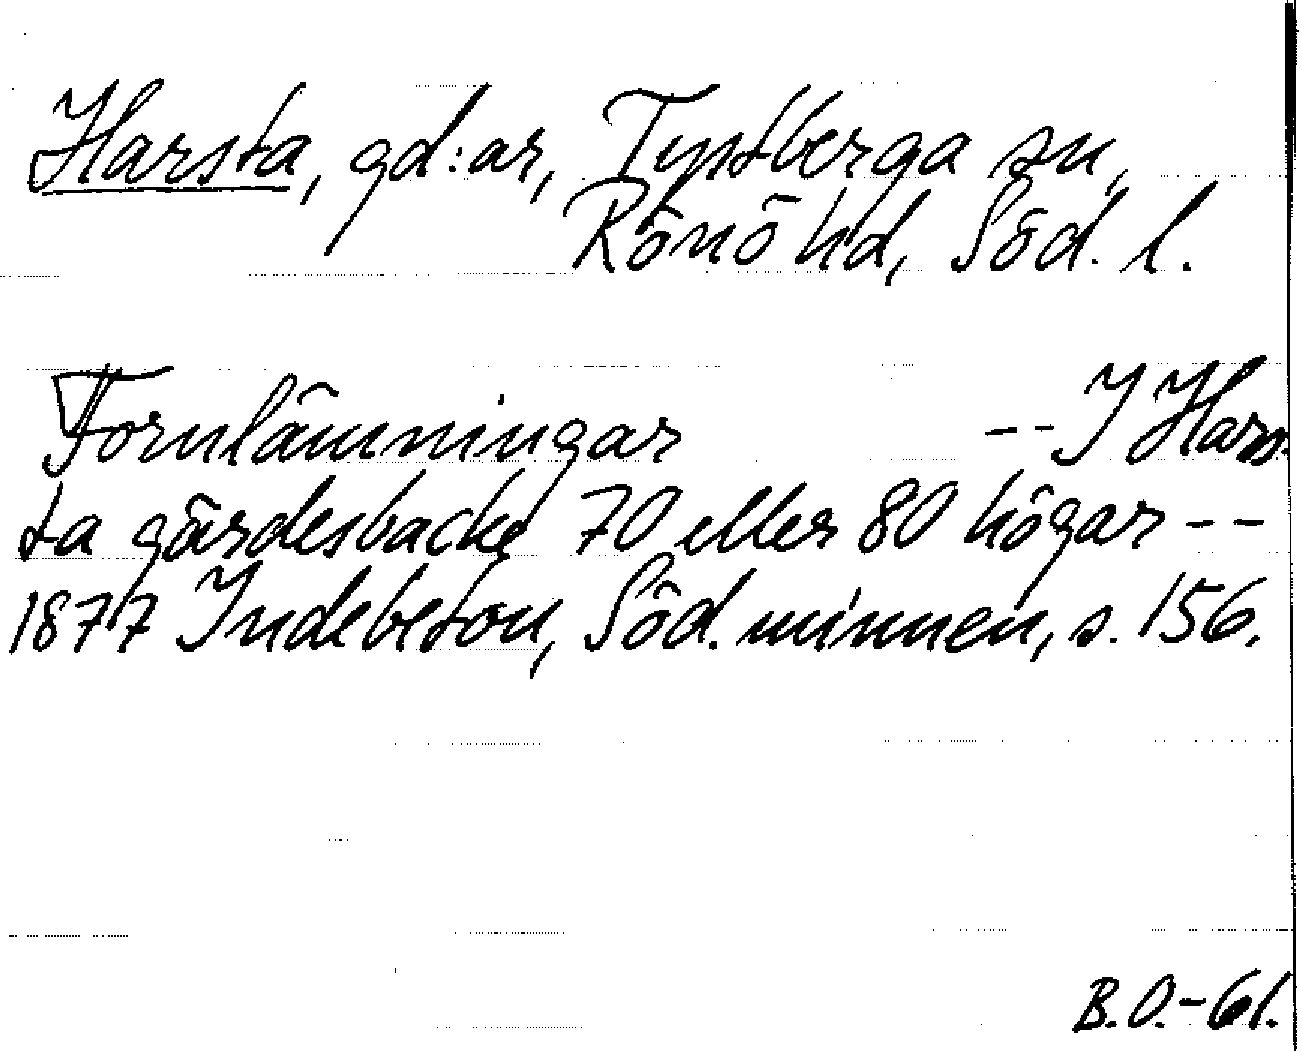 Harsta, gd:ar, Tystberga sn,
Rönö hd, Söd. l.
Fornlämningar -- I Hars-
ta gärdesbacke 70 eller 80 högar --
1877 Indebetou, Söd. minnen, s. 156.
B.O.-61.